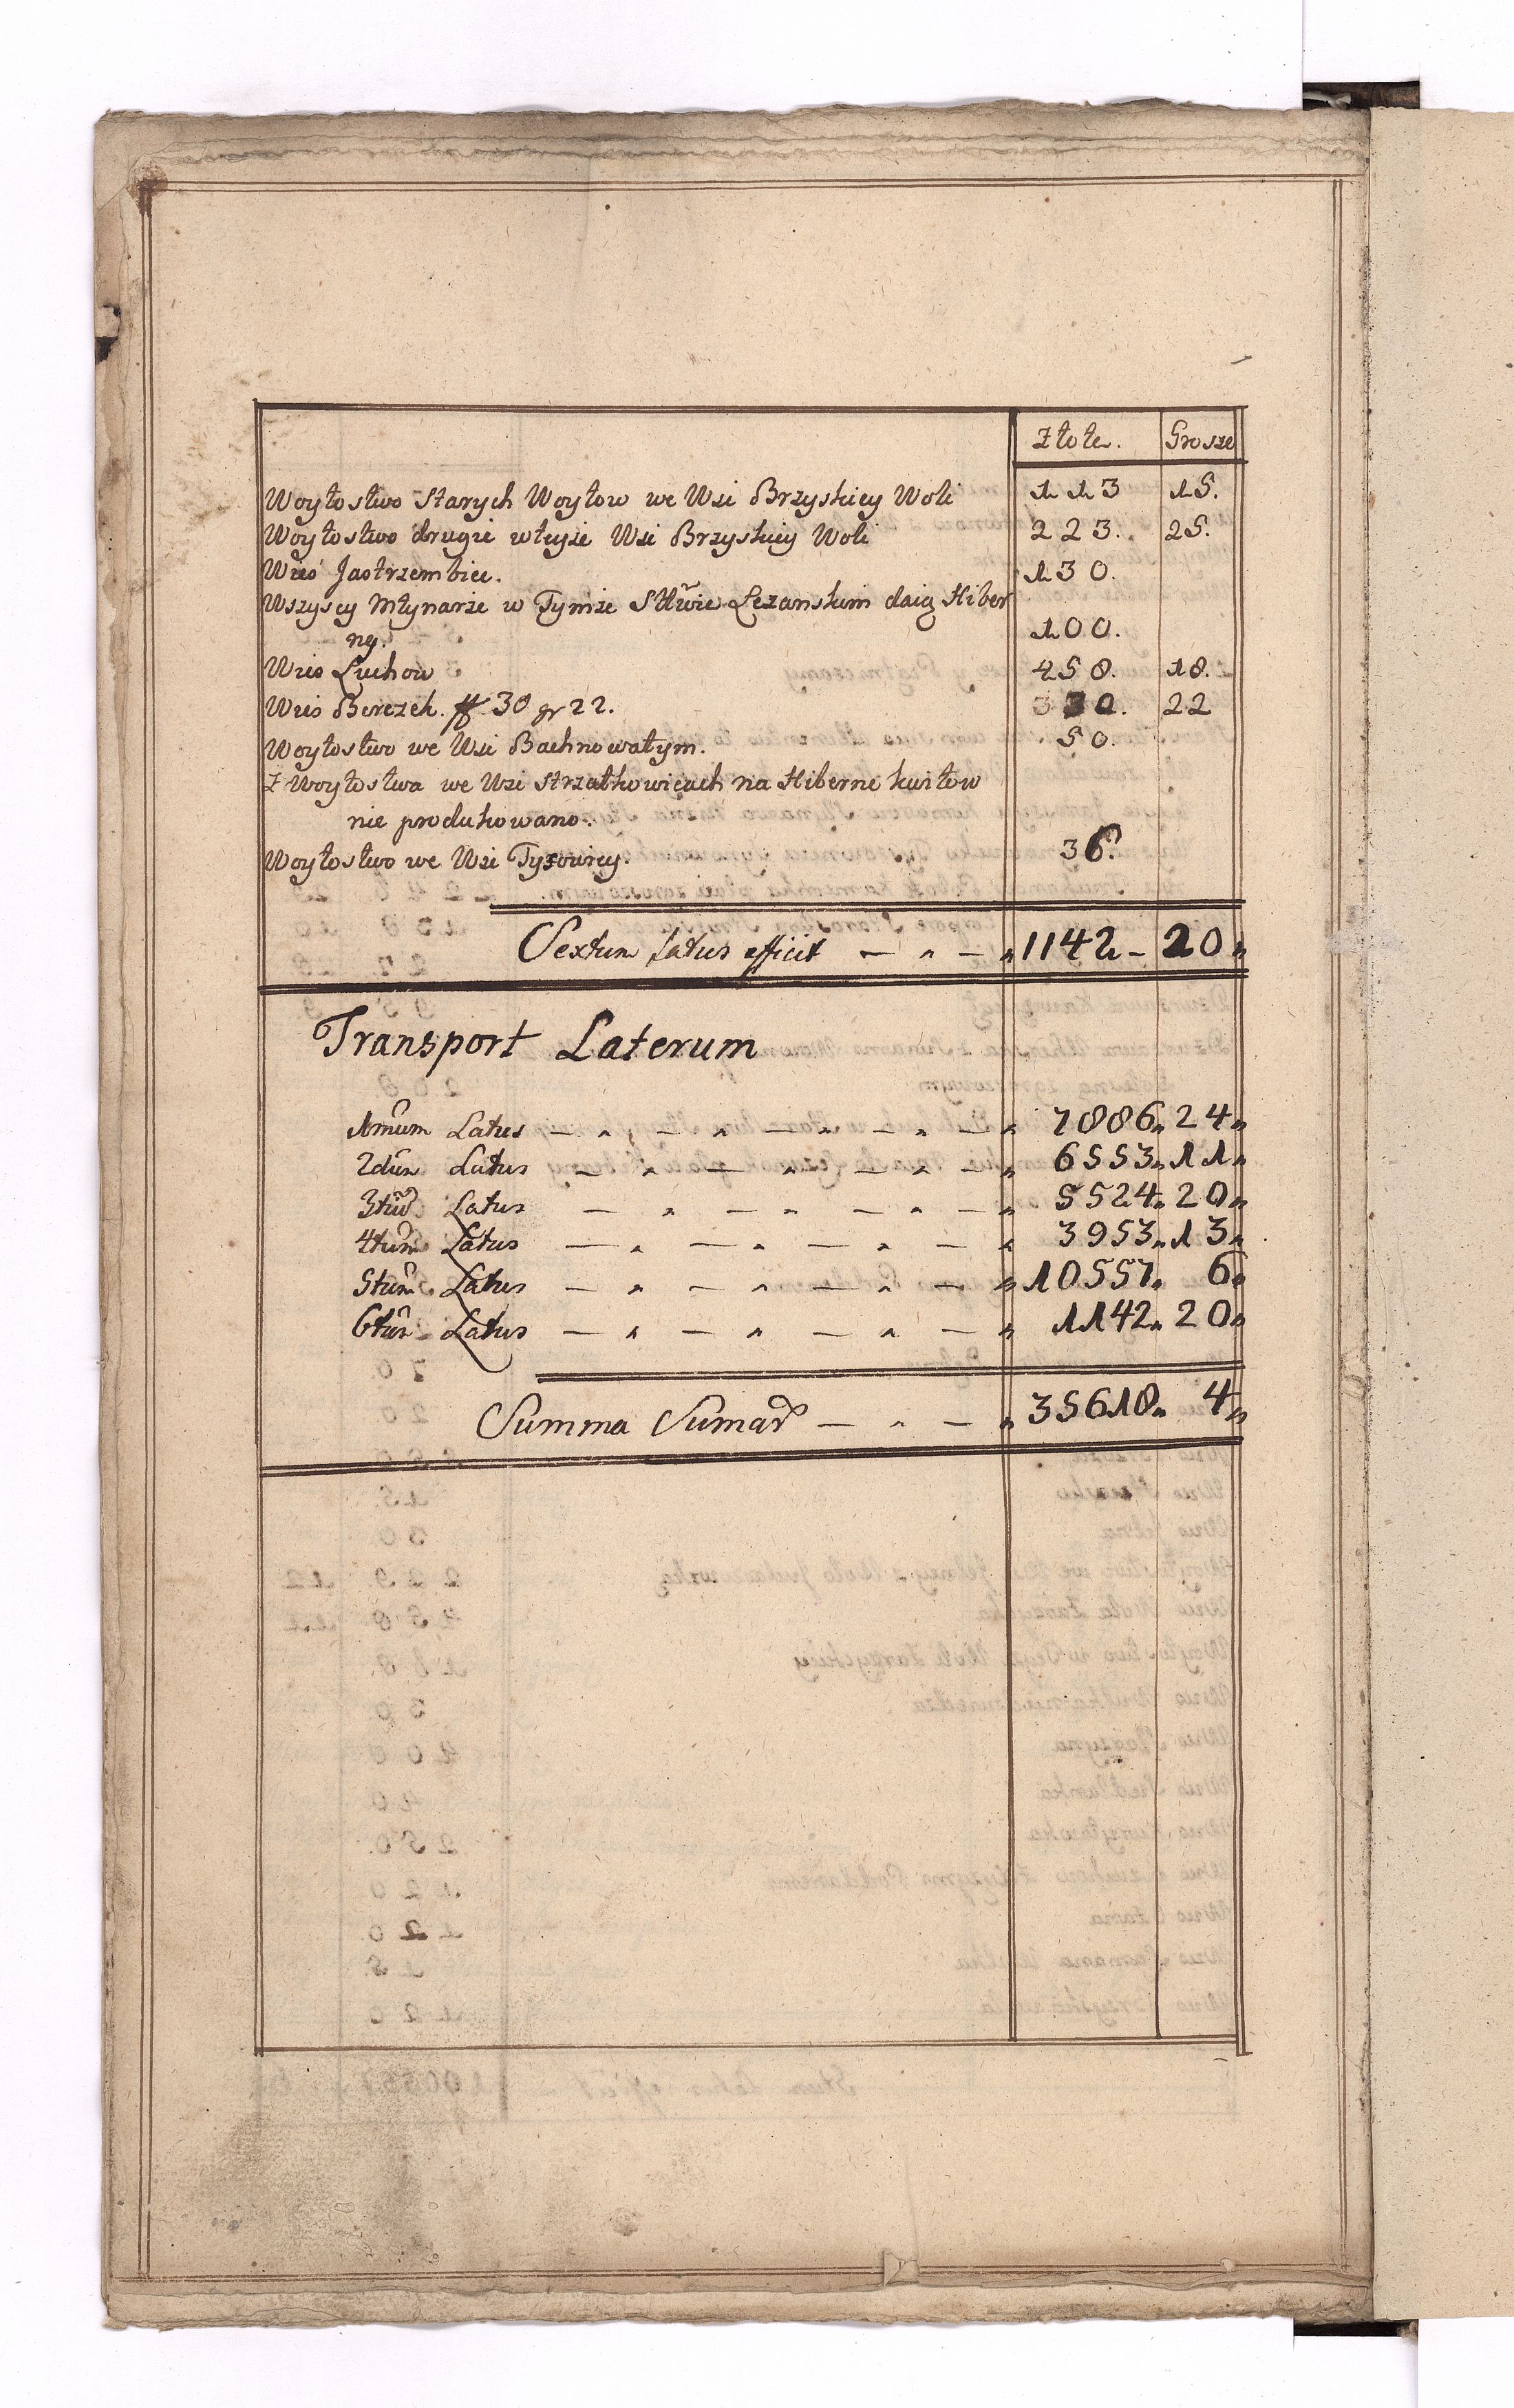 Złote. Grosze
Woytostwo Starych Woytow we Wsi Brzyskiey Woli 113 15.
Woytostwo drugie wteyże Wsi Brzyskiey Woli 223. 25.
Wieś Jastrzembiec. 130.
Wszyscy Młynarze w Tymże Sttwie Leżanskim daią Hiber
ny. 100.
Wies Luchow 458. 18.
Wies Berezek. ff 30 gr 22. 30. 22
Woytostwo we Wsi Bachnowatym. 50.
Z Woytostwa we Wsi Strzałkowicach na Hiberne kwitow
nie produkowano.
Woytostwo we Wsi Tysowicy. 36.
Sextum Latus efficit — „ — „ 1142 – 20 „
Transport Laterum
1mum Latus — „ — „ — „ — „ — „ 7886 „ 24 „
2dum Latus — „ — „ — „ — „ 6553 „ 11 „
3tium Latus — „ — „ — „ — „ 5524 „ 20 „
4tum Latus — „ — „ — „ — „ 3953 „ 13 „
5tum Latus — „ — „ — „ — „ 10557 „ 6 „
6tum Latus — „ — „ — „ — „ 1142 „ 20 „
Summa Sumar — „ — „ 35618 „ 4 „